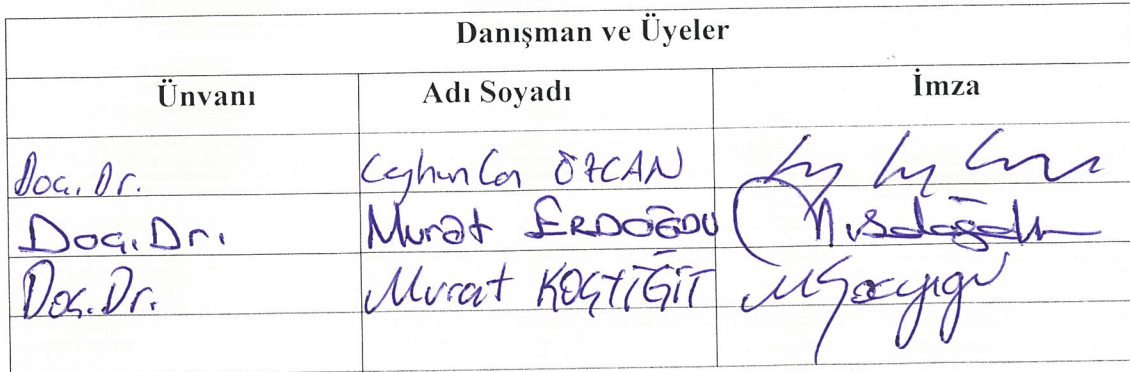 Danışman ve Üyeler
Ünvanı Adı Soyadı İmza
Doç. Dr. Ceyhun Can ÖZCAN
Doç. Dr. Murat ERDOĞDU
Doç. Dr. Murat KOÇYİĞİT